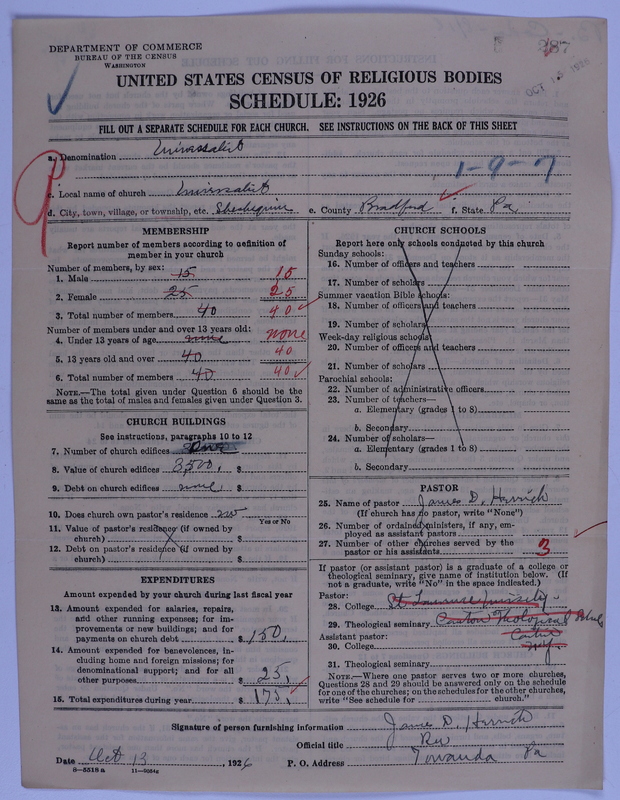 287
DEPARTMENT OF COMMERCE
BUREAU OF THE CENSUS
WASHINGTON
OCT 15 1926
UNITED STATES CENSUS OF RELIGIOUS BODIES
SCHEDULE: 1926
FILL OUT A SEPARATE SCHEDULE FOR EACH CHURCH. SEE INSTRUCTIONS ON THE BACK OF THIS SHEET
a. Denomination Universalist
1-9-7
c. Local name of church Universalist
d. City, town, village, or township, etc. Sheshequin e. County Bradford f. State Pa
MEMBERSHIP
Report number of members according to definition of
member in your church
Number of members, by sex:
1. Male 15 15
2. Female 25 25
3. Total number of members 40 40
Number of members under and over 13 years old:
4. Under 13 years of age none none
5. 13 years old and over 40 40
6. Total number of members 40 40
NOTE.—The total given under Question 6 should be the
same as the total of males and females given under Question 3.
CHURCH BUILDINGS
See instructions, paragraphs 10 to 12
7. Number of church edifices
8. Value of church edifices 3500. $
9. Debt on church edifices none $
10. Does church own pastor's residence no
Yes or No
11. Value of pastor's residence (if owned by
church) $
12. Debt on pastor's residence (if owned by
church) $
EXPENDITURES
Amount expended by your church during last fiscal year
13. Amount expended for salaries, repairs,
and other running expenses; for im-
provements or new buildings; and for
payments on church debt $ 150.
14. Amount expended for benevolences, in-
cluding home and foreign missions; for
denominational support; and for all
other purposes 25.
15. Total expenditures during year $ 175.
CHURCH SCHOOLS
Report here only schools conducted by this church
Sunday schools:
16. Number of officers and teachers
17. Number of scholars
Summer vacation Bible schools:
18. Number of officers and teachers
19. Number of scholars
Week-day religious schools:
20. Number of officers and teachers
21. Number of scholars
Parochial schools:
22. Number of administrative officers
23. Number of teachers—
a. Elementary (grades 1 to 8)
b. Secondary
24. Number of scholars—
a. Elementary (grades 1 to 8)
b. Secondary
PASTOR
25. Name of pastor James D. Herrick
(If church has no pastor, write "None")
26. Number of ordained ministers, if any, em-
ployed as assistant pastors
27. Number of other churches served by the
pastor or his assistants 3
If pastor (or assistant pastor) is a graduate of a college or
theological seminary, give name of institution below. (If
not a graduate, write "No" in the space indicated.)
Pastor:
28. College St. Lawrence University.
29. Theological seminary Canton Theological School
Assistant pastor: Canton
30. College N.Y.
31. Theological seminary
NOTE.—Where one pastor serves two or more churches,
Questions 28 and 29 should be answered only on the schedule
for one of the churches; on the schedules for the other churches,
write "See schedule for church."
Signature of person furnishing information James D. Herrick
Official title Rev
Date Oct 13, 1926 P. O. Address Towanda Pa
8-5518 a 11-9054a